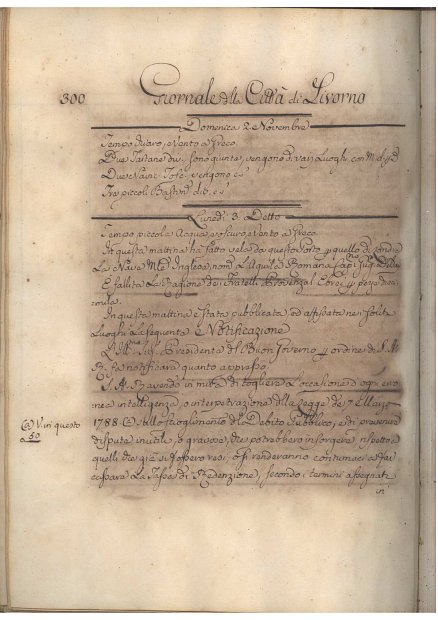 300 Giornale della Città di Livorno
Domenica 2. Novembre
Tempo chiaro, e Vento a Greco
Due Tartane sud. sono giunte, vengono di varj Luoghi con
Due Navic. Tos. vengono
Tre piccoli Bastim.
Lunedì 3. Detto
Tempo piccola Acqua e oscuro, e Vento a Greco
In questa mattina ha fatto vela da questo Porto p. quello di Londra
La Nave M.le Inglese nom.a L'Aquila Romana Cap.no
È fallito La Ragione de' Fratelli Provenzal Ebrei p. pezze
mila.
In questa mattina è stata pubblicata ed affissata ne' soliti
Luoghi La seguente Notificazione
L'Ill.mo Sig.r Presidente del Buon Governo p. ordine di S. A.
R. fa notificare quanto appresso
S. A. R. avendo in mira di togliere L'occasione ad ogni erro
nea intelligenza, o interpretazione della Legge de' 7. Marzo
1788. (a) sullo scioglimento del Debito Pubblico, e di prevenire
dispute inutili, e gravose, che potrebbero insorgere rispetto a
quelli che già si fossero resi, o si renderanno contumaci a
la Tassa di Redenzione, secondo i termini assegnati
in
(a) V. in questo
a 50